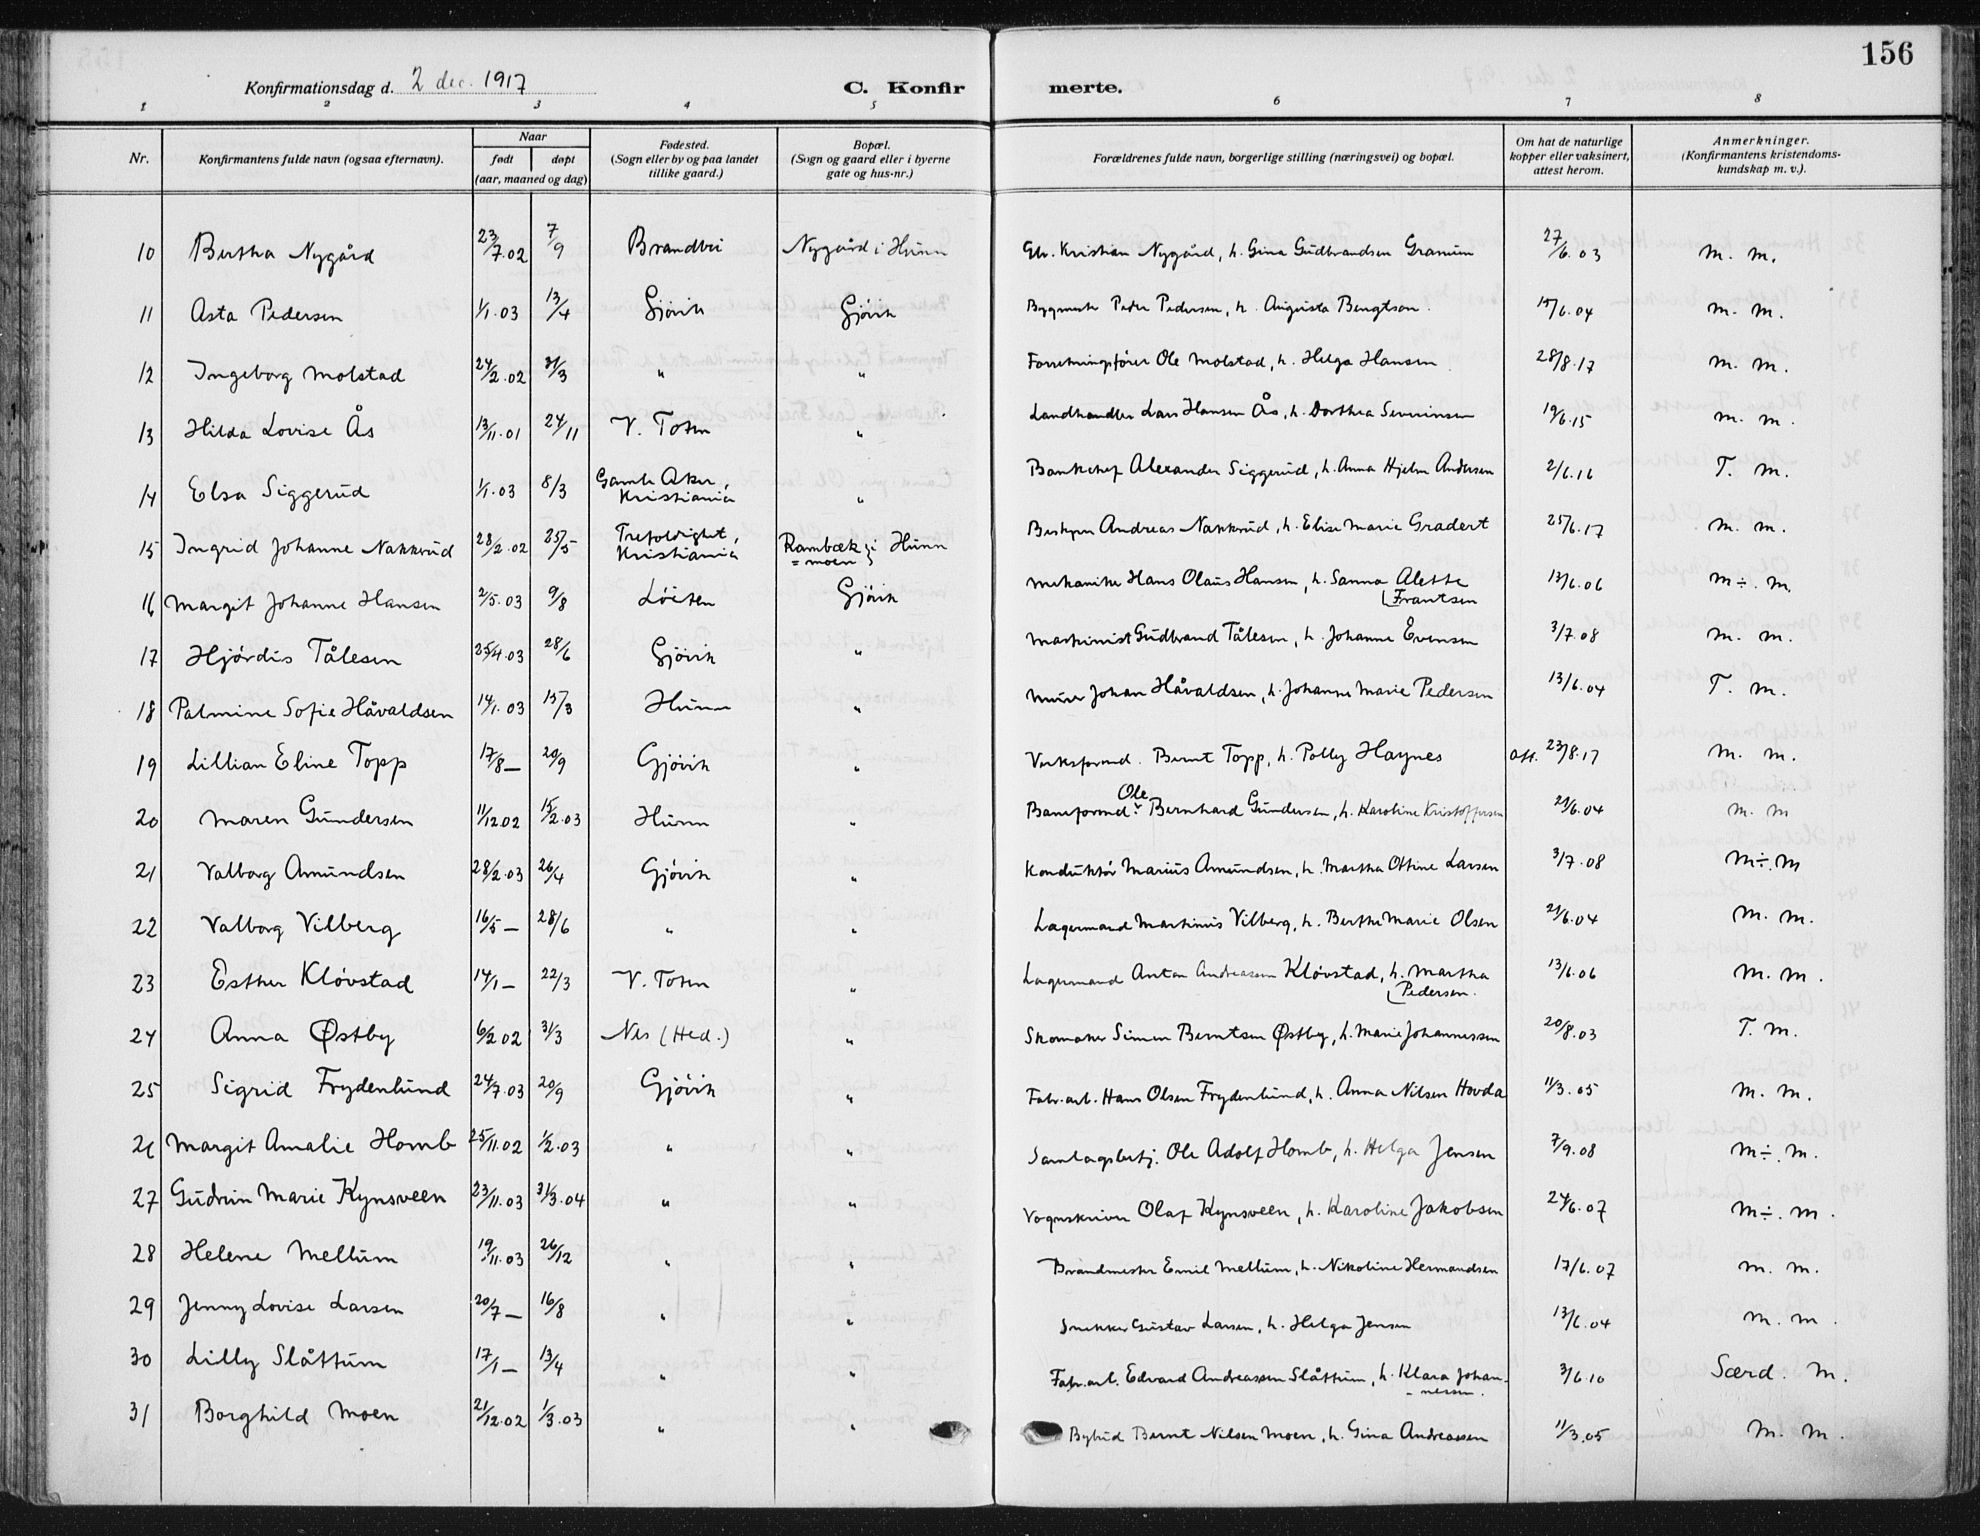 156
Konfirmationsdag d. 2 dec. 1917 C. Konfirmerte.
1 2 3 4 5 6 7 8
Nr. Konfirmantens fulde navn (ogsaa efternavn). Naar født døpt (aar, maaned og dag) Fødested. (Sogn eller by og paa landet tillike gaard.) Bopæl. (Sogn og gaard eller i byerne gate og hus-nr.) Forældrenes fulde navn, borgerlige stilling (næringsvei) og bopæl. Om hat de naturlige kopper eller vaksinert, attest herom. Anmerkninger. (Konfirmantens kristendoms-kundskap m. v.).
10 Bertha Nygård 23/7.02 7/9 Brandbu Nygård i Hunn Kristian Nygård, h. Gina Gudbrandsen Granum 27/6.03 M. M.
11 Asta Pedersen 1/1.03 13/4 Gjövik Gjövik Bygmester Peder Pedersen, h. Augusta Bengtson. 15/6.04 M. M.
12 Ingeborg Molstad 24/2.02 31/3 " " Forretningsfører Ole Molstad, h. Helga Hansen 28/8.17 M. M.
13 Hilda Lovise Ås 13/11.01 24/11 V. Toten " Landhandler Lars Hansen Ås, h. Dorthea Severinsen 19/6.15 M. M.
14 Elsa Siggerud 1/1.03 8/3 Gamle Aker, Kristiania " Bankchef Alexander Siggerud, h. Anna Hjelm Andersen 2/6.16 T. M.
15 Ingrid Johanne Nakkerud 28/2.02 25/5 Trefoldighet, Kristiania Rambæk=moen i Hunn Andreas Nakkrud, h. Elise Marie Gradert 25/6.17 M. M.
16 Margit Johanne Hansen 2/5.03 9/8 Löiten Gjövik Mekaniker Hans Olaus Hansen, h. Sanna Alette Frantsen 13/6.06 M÷. M.
17 Hjördis Tålesen 25/4.03 28/6 Gjövik " Maskinist Gudbrand Tålesen, h. Johanne Evensen 3/7.08 M. M.
18 Palmine Sofie Håvaldsen 14/1.03 15/3 Hunn " Murer Johan Håvaldsen, h. Johanne Marie Pedersen 13/6.04 T. M.
19 Lillian Eline Topp 17/8 — 20/9 Gjövik " Verksformd. Bernt Topp, h. Polly Haynes att. 23/8.17 M. M.
20 Maren Gundersen 11/12.02 15/2.03 Hunn " Baneformd. Ole Bernhard Gundersen, h. Karoline Kristoffersen 21/6.04 M. M
21 Valborg Amundsen 28/2.03 26/4 Gjövik " Konduktör Marius Amundsen, h. Martha Ottine Larsen 3/7.08 M÷. M
22 Valborg Vilberg 16/5 — 28/6 " " Lagermand Martinus Vilberg, h. Berthe Marie Olsen 21/6.04 M. M.
23 Esther Kløvstad 14/1 — 22/3 V. Toten " Lagermand Anton Andreassen Kløvstad, h. Martha Pedersen. 13/6.06 M. M.
24 Anna Østby 6/2 02 31/3 Nes (Hed.) " Skomaker Simen Berntsen Østby, h. Marie Johannessen 20/8.03 T. M.
25 Sigrid Frydenlund 24/7.03 20/9 Gjövik " Fabr.arb. Hans Olsen Frydenlund, h. Anna Nilsen Hovda 11/3.05 M. M.
26 Margit Amalie Homb 25/11.02 1/2.03 " " Samlagsbetj. Ole Adolf Homb, h. Helga Jensen 7/9.08 M÷. M.
27 Gudrun Marie Kynsveen 23/11.03 31/3.04 " " Vognskriver Olaf Kynsveen, h. Karoline Jakobsen 24/6.07 M÷. M.
28 Helene Mellum 19/11.03 26/12 " " Brandmester Emil Mellum, h. Nikoline Hermandsen 17/6.07 M. M.
29 Jenny Lovise Larsen 20/7 — 16/8 " " Snekker Gustav Larsen, h. Helga Jensen 13/6.04 M. M.
30 Lilly Slåttum 17/1 — 13/4 " " Fabr.arb. Edvard Andreassen Slåttum, h. Klara Johan-nessen. 3/6.10 Særd. M.
31 Borghild Moen 21/12.02 1/3.03 " " Bybud Bernt Nilsen Moen, h. Gina Andreassen 11/3.05 M. M.